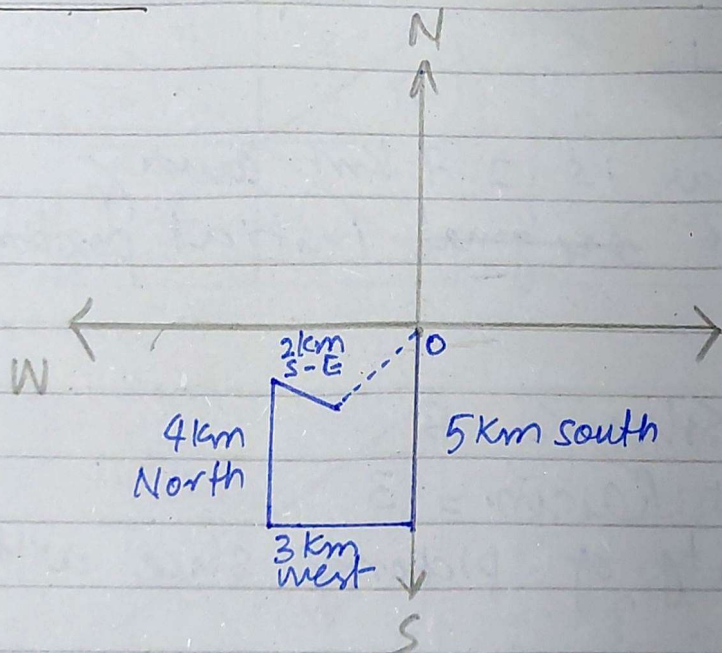 N
W
O
2km
S-E
4km
North
5km south
3 km
west
S